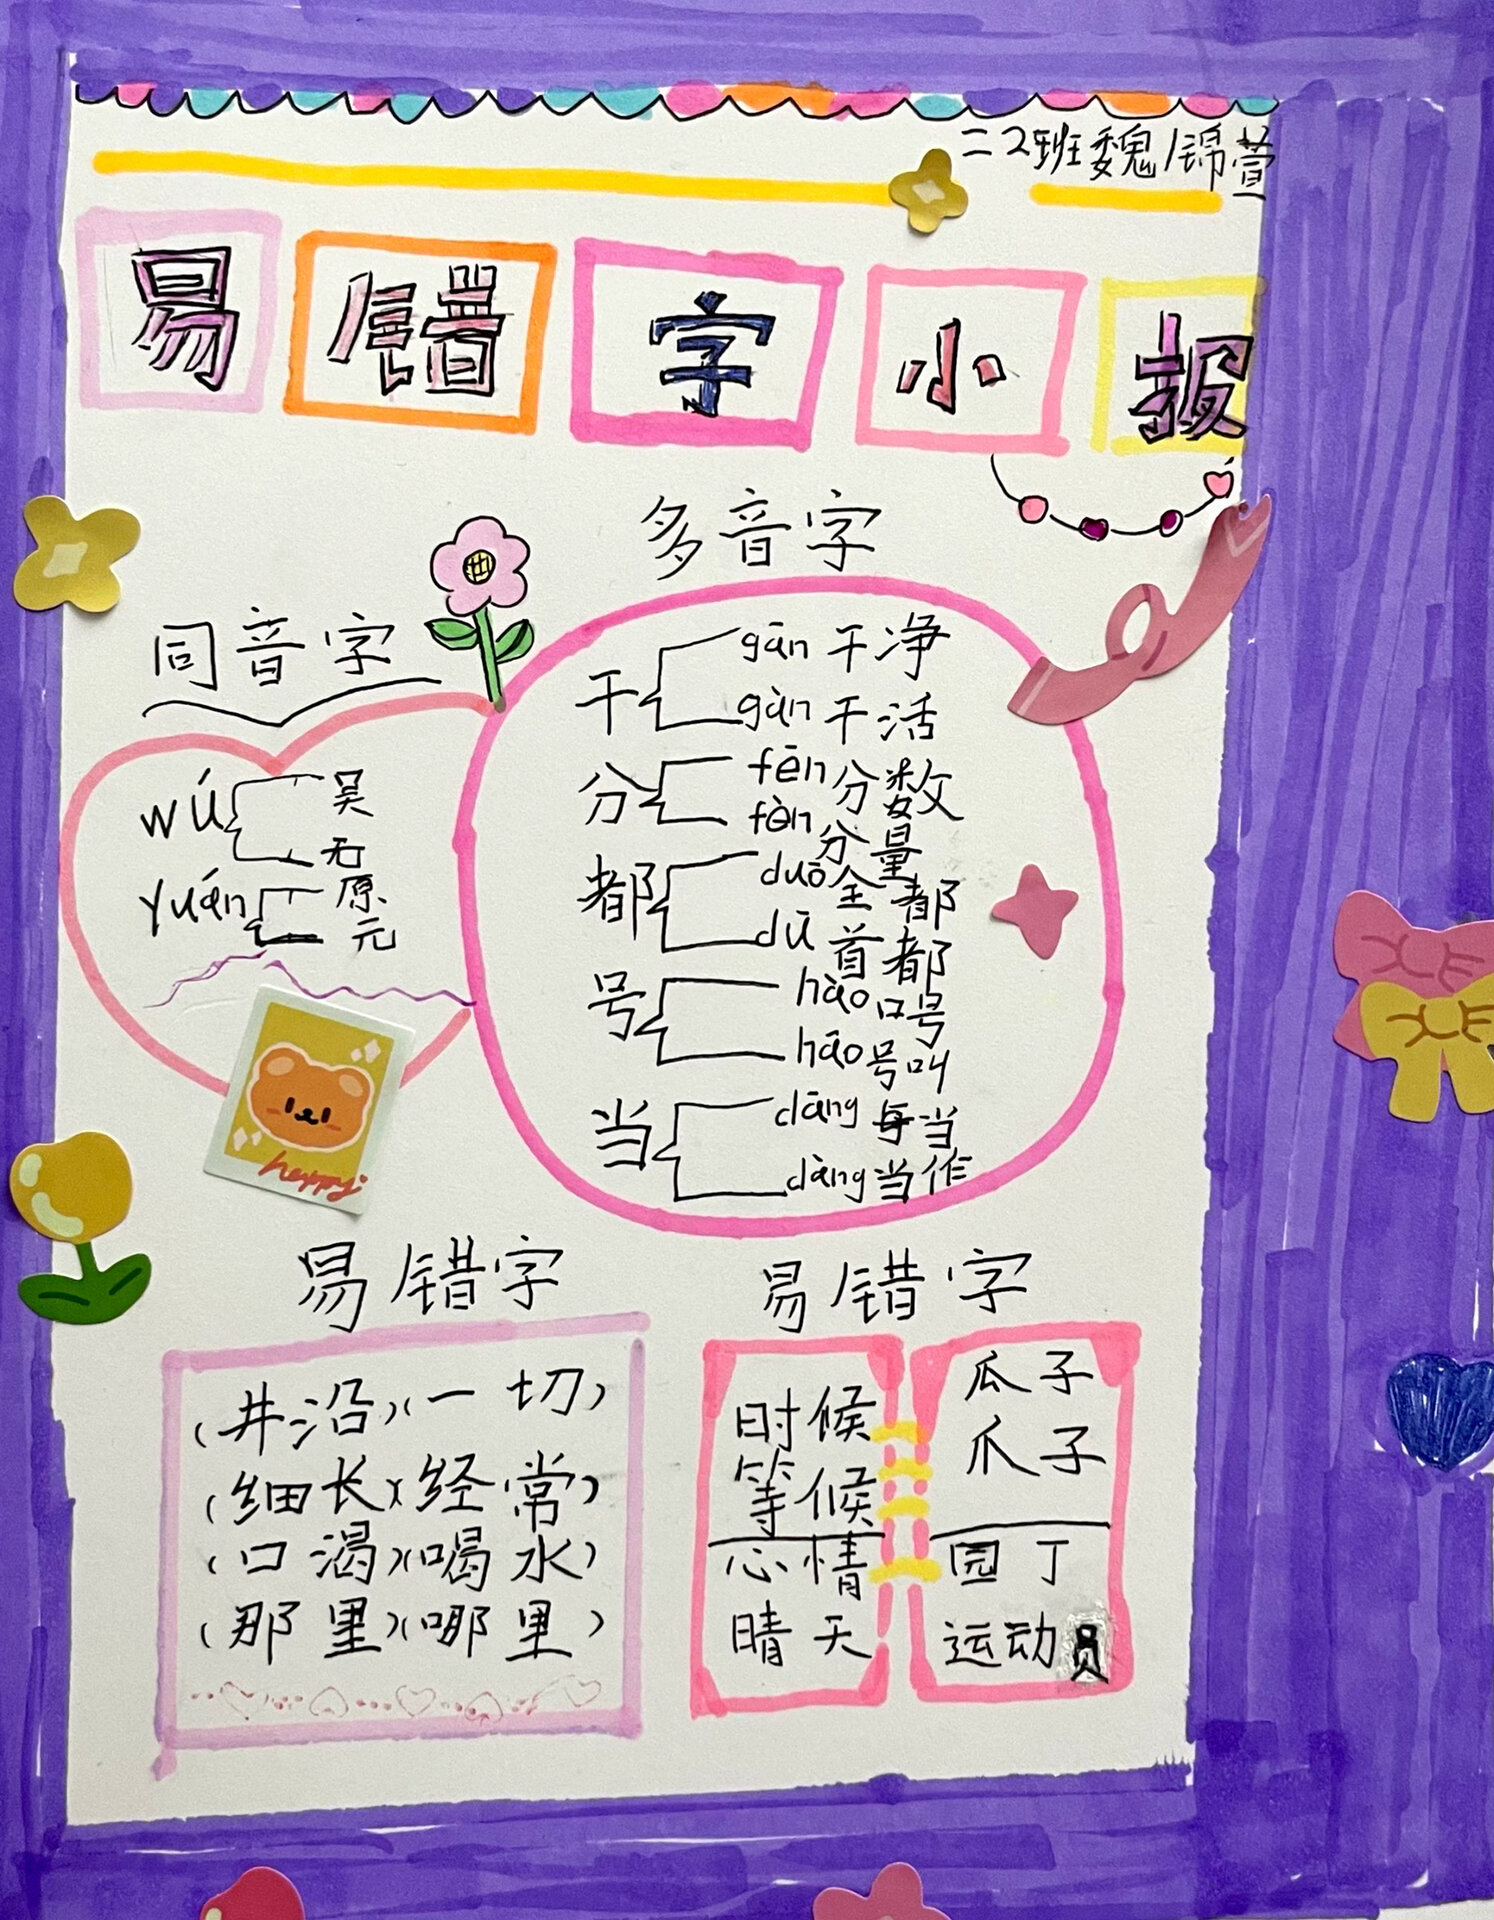 二2班魏锦萱
易错字小报
多音字
同音字
干 gān 干净
gàn 干活
分 fēn 分数
fèn 分量
都 duō 全都
dū 首都
号 hào 口号
hāo 号叫
当 dāng 每当
dàng 当作
wú 吴
无
yuán 原
元
happy
易错字
(井沿)(一切)
(细长)(经常)
(口渴)(喝水)
(那里)(哪里)
易错字
时候
等候
心情
晴天
瓜子
爪子
园丁
运动员